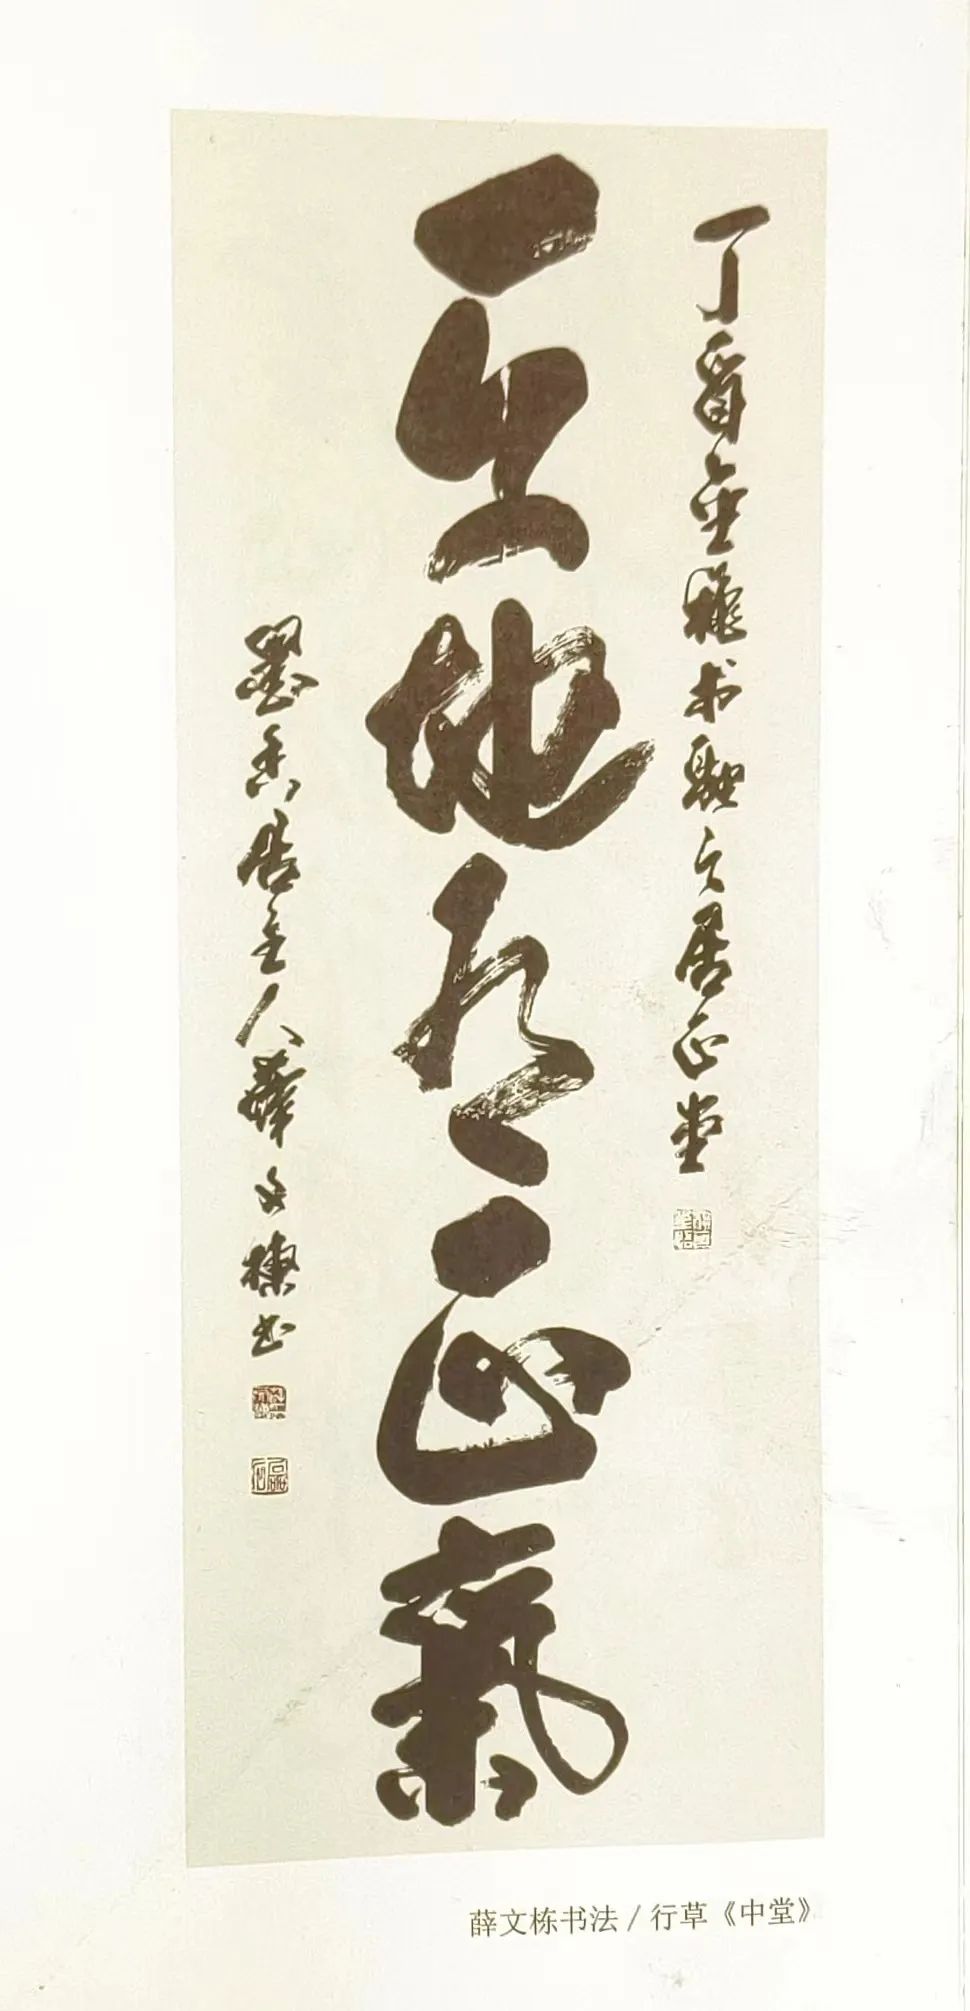 丁酉金秋之居正堂
天地有正氣
墨香居主人薛文棟书
薛文栋书法 / 行草《中堂》